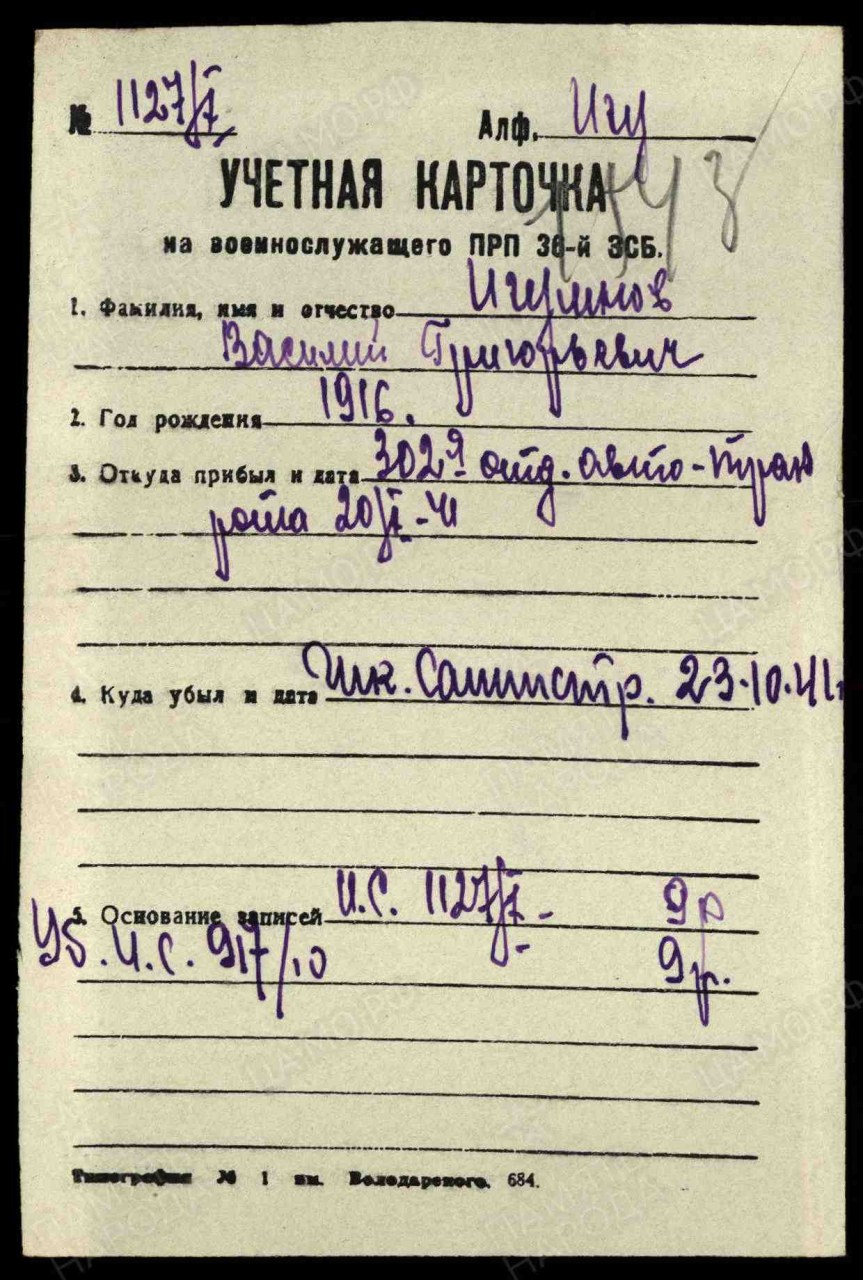 № 1127/X
Алф. Игу
УЧЕТНАЯ КАРТОЧКА
1543
на военнослужащего ПРП 36-й ЗСБ.
1. Фамилия, имя и отчество Игуминов
Василий Григорьевич
2. Год рождения 1916.
3. Откуда прибыл и дата 302я отд. авто-тран
рота 20/X-41
4. Куда убыл и дата Шк. Санинстр. 23.10.41г
5. Основание записей И.С. 1127/X - 9р
Уб. И.С. 917/10 9р.
Типография № 1 им. Володарского. 684.
ЦАМО.РФ
ПАМЯТЬ НАРОДА